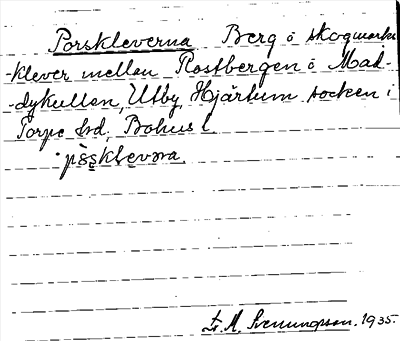 Porskleverna Berg o skogmarks
-klever mellan Rostbergen o Mad-
-dykullen, Utby, Hjärtum socken i
Torpe hd, Bohus l.
pɔ̀sklevəra
Fr. M. Svenungsson. 1935.